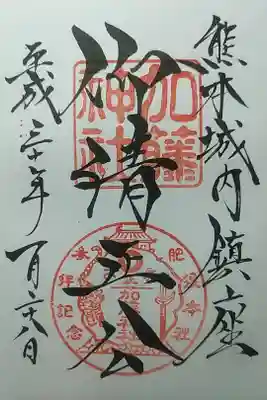 熊本城内鎮座
仰清正公
平成三十年一月二十八日
加藤
神社
参拝記念